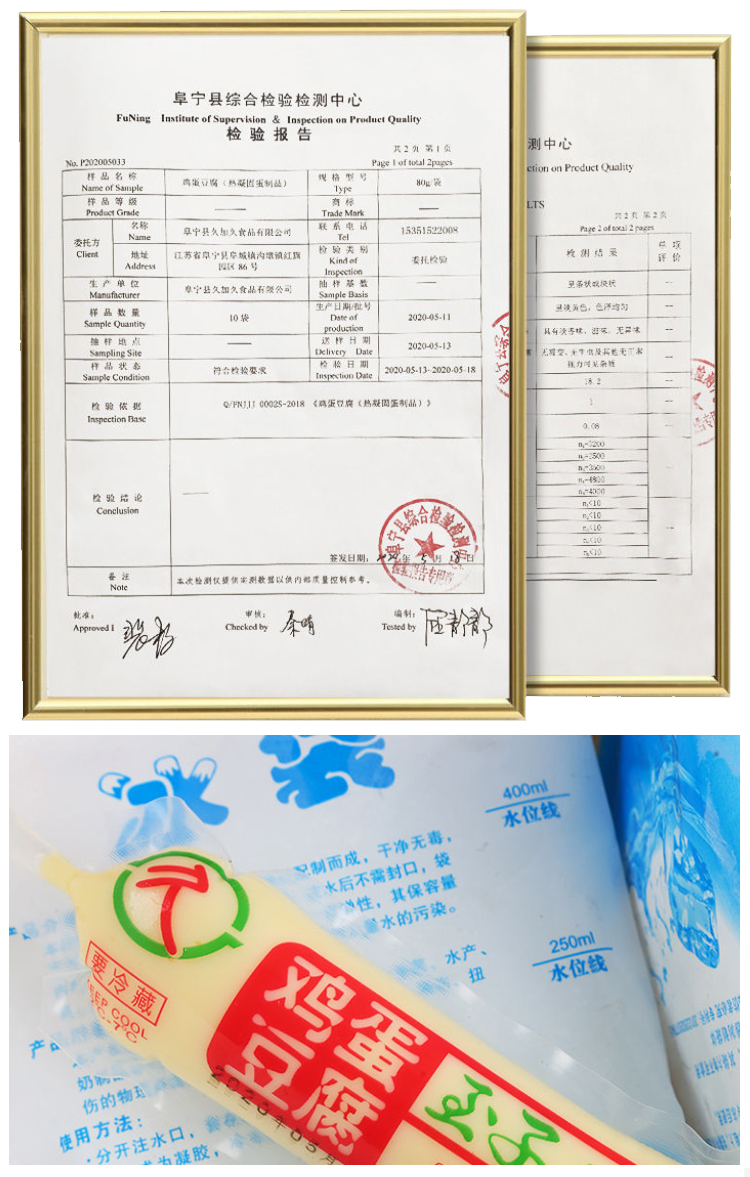 阜宁县综合检验检测中心
FuNing Institute of Supervision & Inspection on Product Quality
检验报告
共2页 第1页
No. P202005033
Page 1 of total 2pages
样品名称
Name of Sample
鸡蛋豆腐（热凝固蛋制品）
规格型号
Type
80g/袋
样品等级
Product Grade
商标
Trade Mark
委托方
Client
名称
Name
阜宁县久加久食品有限公司
联系电话
Tel
15351522008
地址
Address
江苏省阜宁县阜城镇沟墩镇红旗
园区86号
检验类别
Kind of
Inspection
委托检验
生产单位
Manufacturer
阜宁县久加久食品有限公司
抽样基数
Sample Basis
样品数量
Sample Quantity
10袋
生产日期/批号
Date of
production
2020-05-11
抽样地点
Sampling Site
送样日期
Delivery Date
2020-05-13
样品状态
Sample Condition
符合检验要求
检验日期
Inspection Date
2020-05-13~2020-05-18
检验依据
Inspection Base
Q/FNJJJ 0002S-2018 《鸡蛋豆腐（热凝固蛋制品）》
检验结论
Conclusion
签发日期：
年5月18日
备注
Note
本次检测仅提供实测数据以供内部质量控制参考。
批准：
Approved
审核：
Checked by
编制：
Tested by
阜宁县综合检验检测中心
检验报告专用章
测中心
ction on Product Quality
LTS
共2页 第2页
Page 2 of total 2 pages
检测结果
单项
评价
呈条状或块状
呈淡黄色，色泽均匀
具有淡香味、滋味，无异味
18.2
1
0.08
n₁=3200
n₂=3500
n₃=3600
n₄=4800
n₅=4000
n₁<10
n₂<10
n₃<10
n₄<10
n₅<10
400ml
水位线
配制而成，干净无毒，
水后不需封口，袋
性，其保容量
水的污染。
水产、
扭
250ml
水位线
要冷藏
KEEP COOL
鸡蛋
豆腐
玉子
2020年05月
奶制
伤的物理
使用方法：
·分开注水口，
成为凝胶，